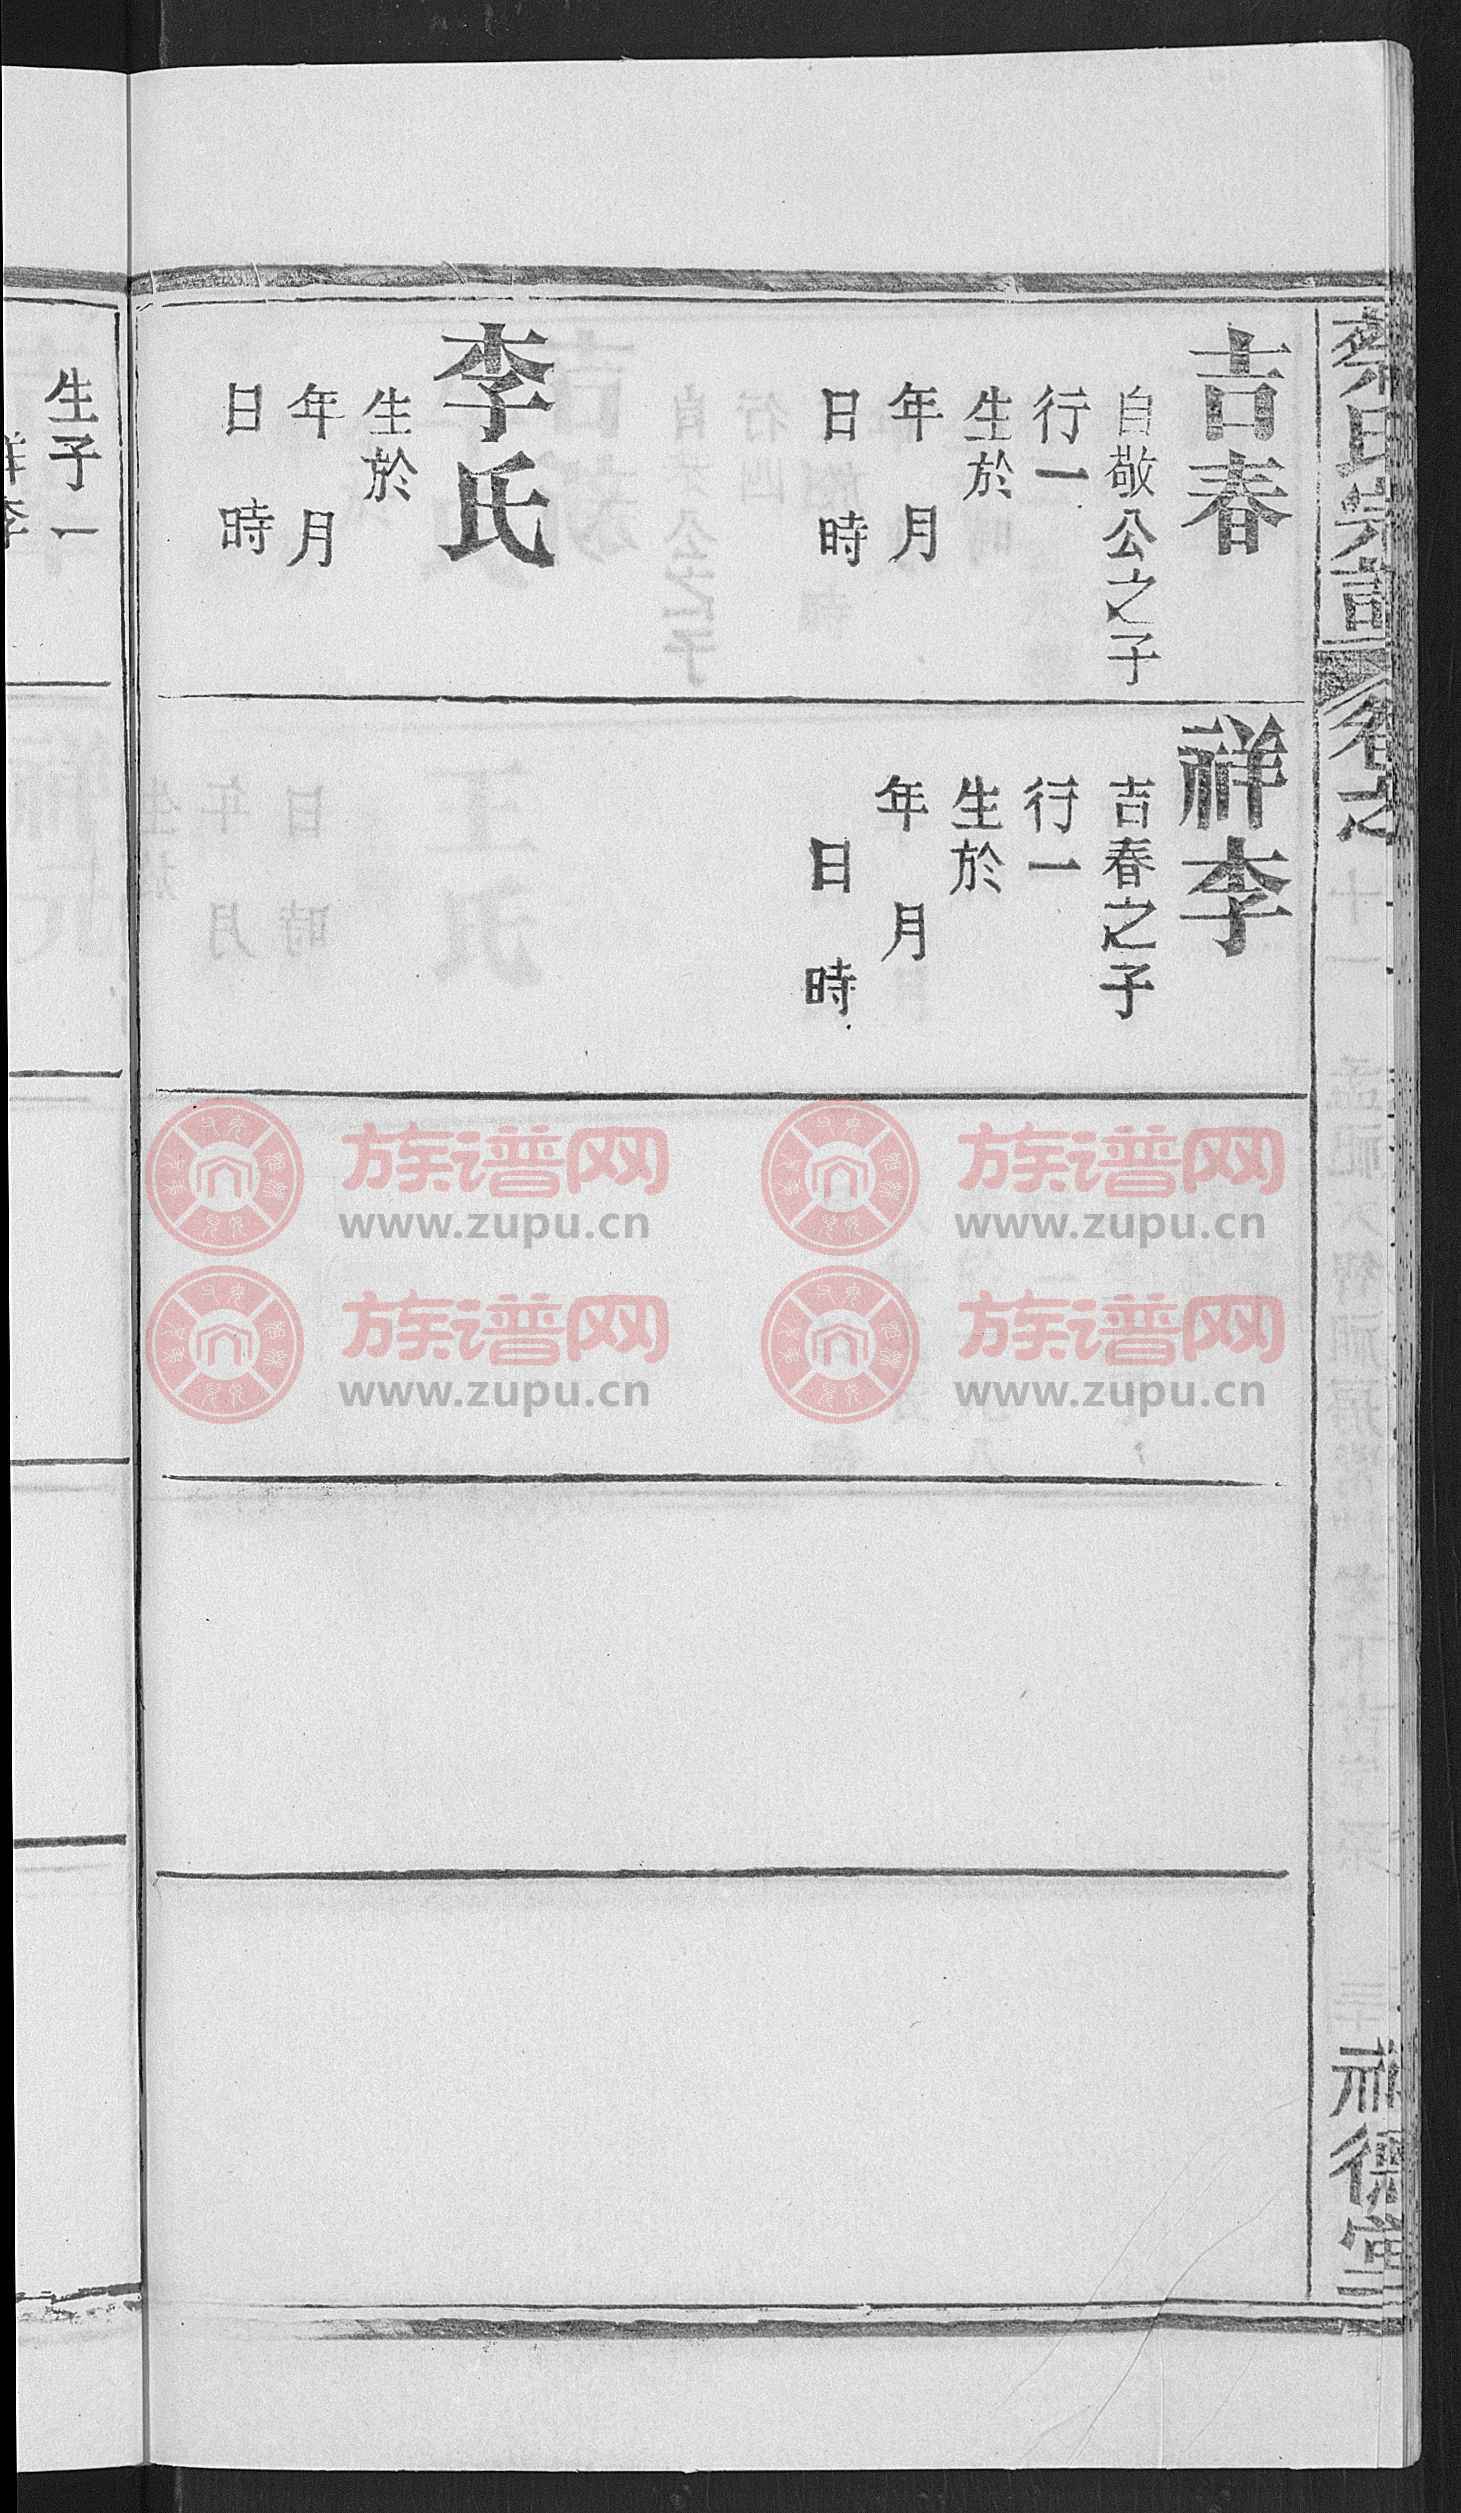 氏宗譜
卷之
德堂
吉春
自敬公之子
行一
生於
年 月
日 時
李氏
生於
年 月
日 時
祥李
吉春之子
行一
生於
年 月
日 時
生子一
祥李
族谱网
www.zupu.cn
族谱网
www.zupu.cn
族谱网
www.zupu.cn
族谱网
www.zupu.cn